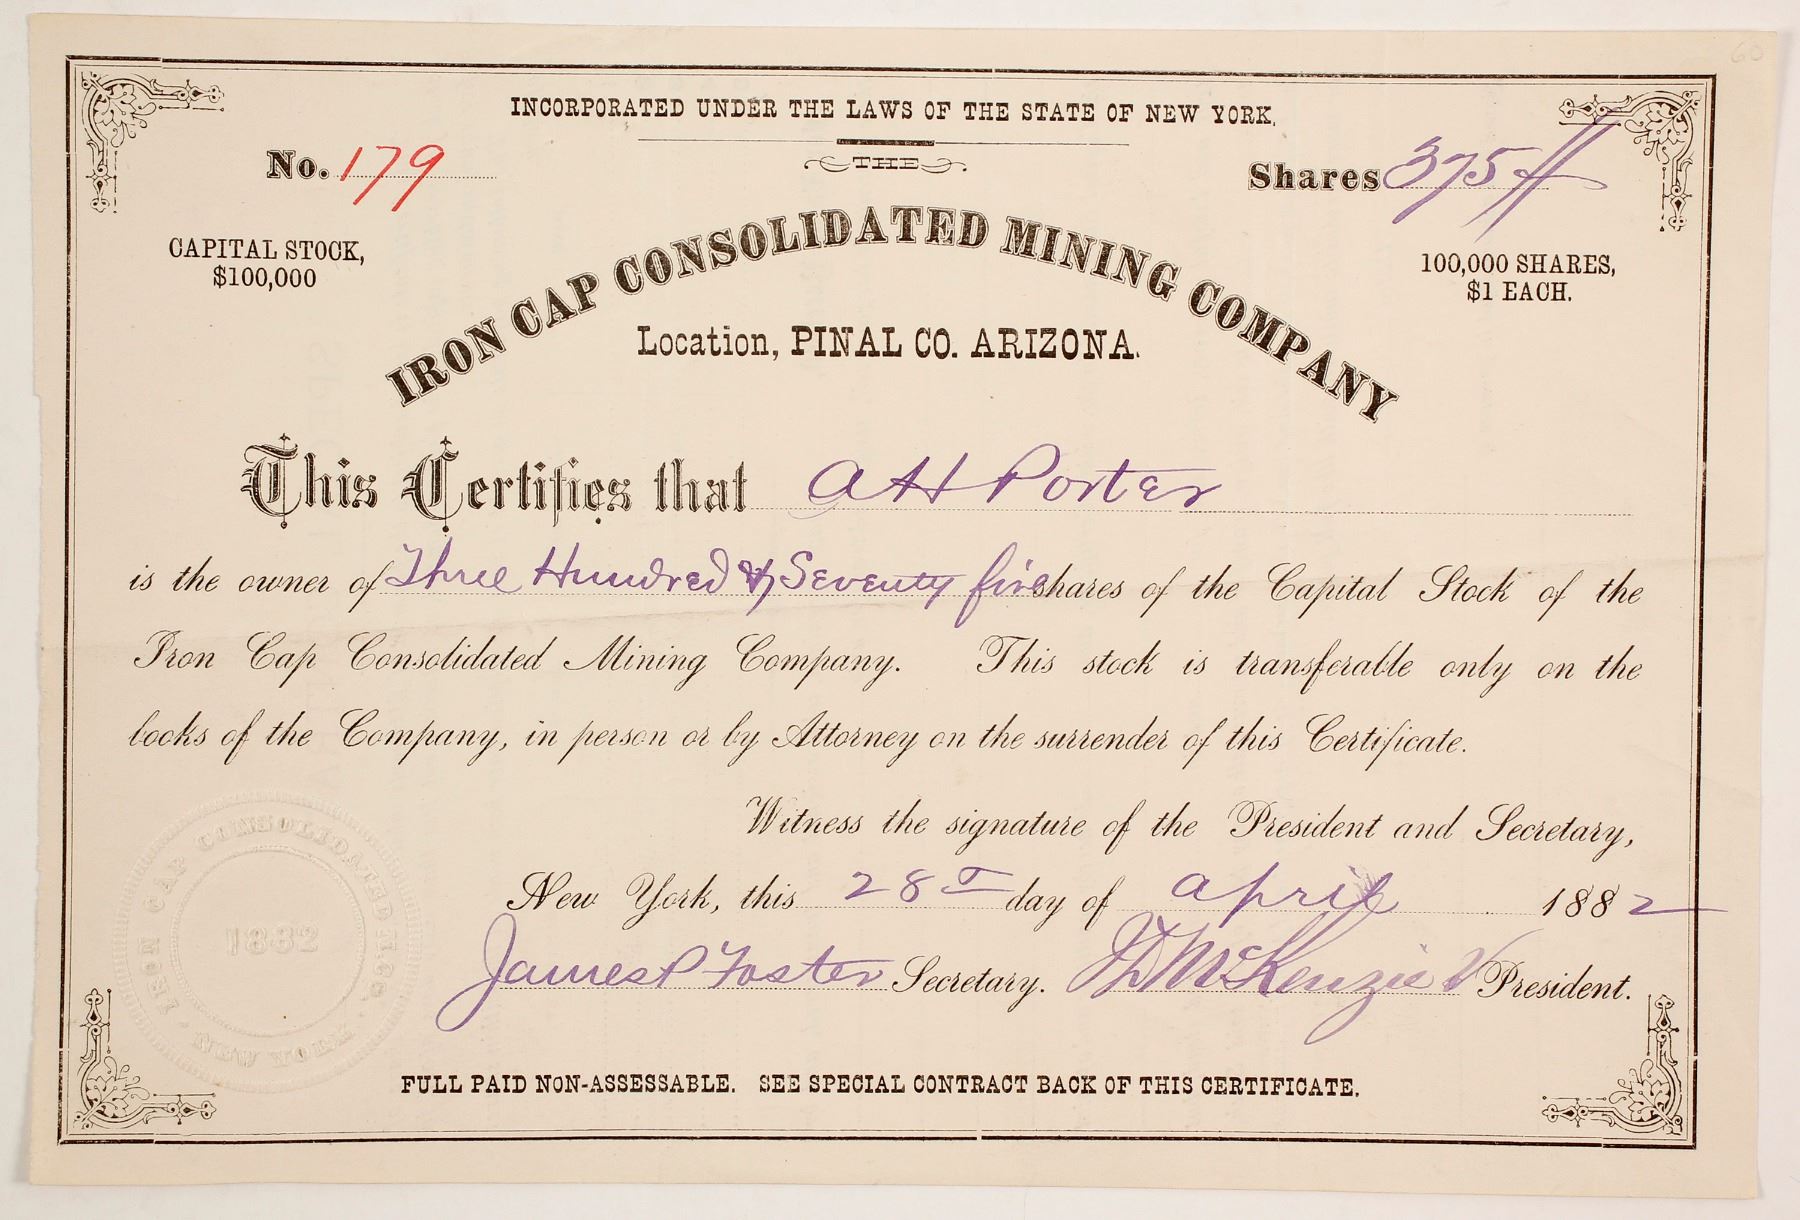 60
INCORPORATED UNDER THE LAWS OF THE STATE OF NEW YORK.
No. 179
THE
Shares 375
CAPITAL STOCK,
$100,000
100,000 SHARES,
$1 EACH.
IRON CAP CONSOLIDATED MINING COMPANY
Location, PINAL CO. ARIZONA.
This Certifies that A H Porter
is the owner of Three Hundred & Seventy five shares of the Capital Stock of the
Iron Cap Consolidated Mining Company. This stock is transferable only on the
books of the Company, in person or by Attorney on the surrender of this Certificate.
Witness the signature of the President and Secretary,
New York, this 28 day of april 1882
James P Foster Secretary. McKenzie V President.
IRON CAP CONSOLIDATED M. CO.
1882
NEW YORK
FULL PAID NON-ASSESSABLE. SEE SPECIAL CONTRACT BACK OF THIS CERTIFICATE.